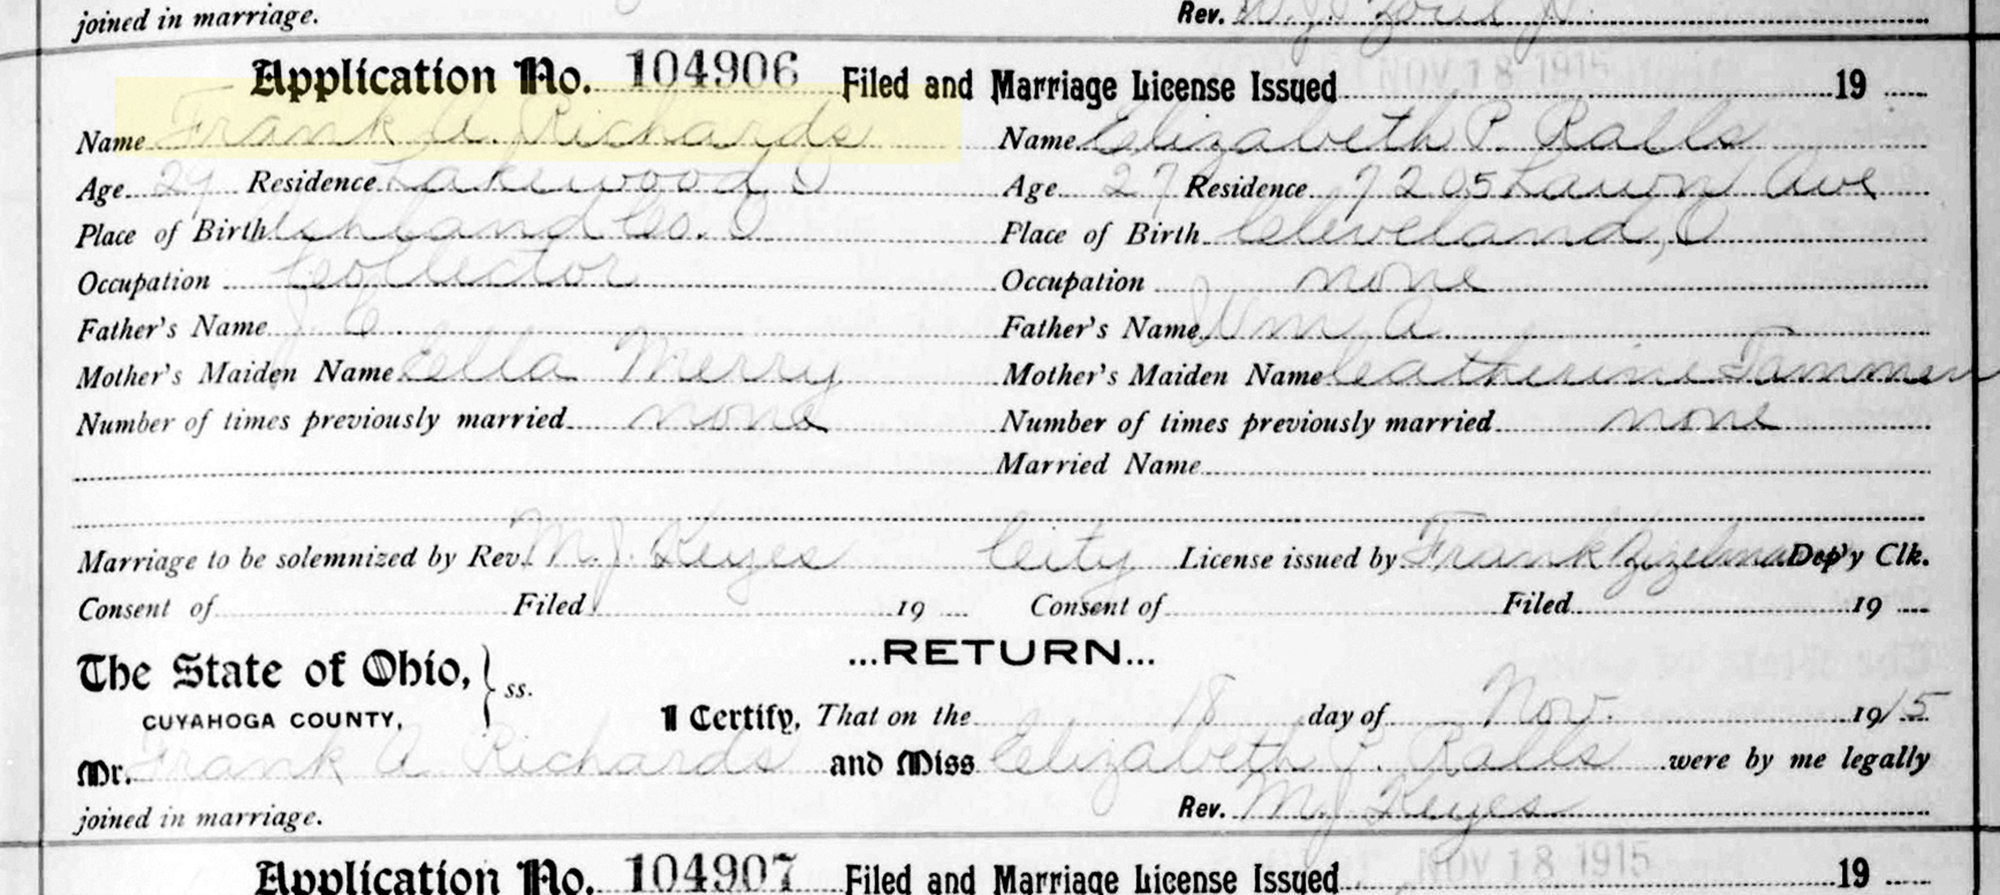 joined in marriage. Rev. W. J.
Application No. 104906 Filed and Marriage License Issued NOV 18 1915 19
Name Frank A. Richards Name Elizabeth P. Ralls
Age 29 Residence Lakewood O Age 27 Residence 7205 Lawn Ave
Place of Birth Ashland Co. O Place of Birth Cleveland, O
Occupation Collector Occupation none
Father's Name J. C. Father's Name Wm A.
Mother's Maiden Name Ella Merry Mother's Maiden Name Catherine Tammen
Number of times previously married none Number of times previously married none
Married Name
Marriage to be solemnized by Rev. M. J. Keyes City License issued by Frank Zizelman Dep'y Clk.
Consent of Filed 19 Consent of Filed 19
...RETURN...
The State of Ohio, } ss.
CUYAHOGA COUNTY,
I Certify, That on the 18 day of Nov. 1915
Mr. Frank A Richards and Miss Elizabeth P. Ralls were by me legally
joined in marriage. Rev. M. J. Keyes
Application No. 104907 Filed and Marriage License Issued NOV 18 1915 19